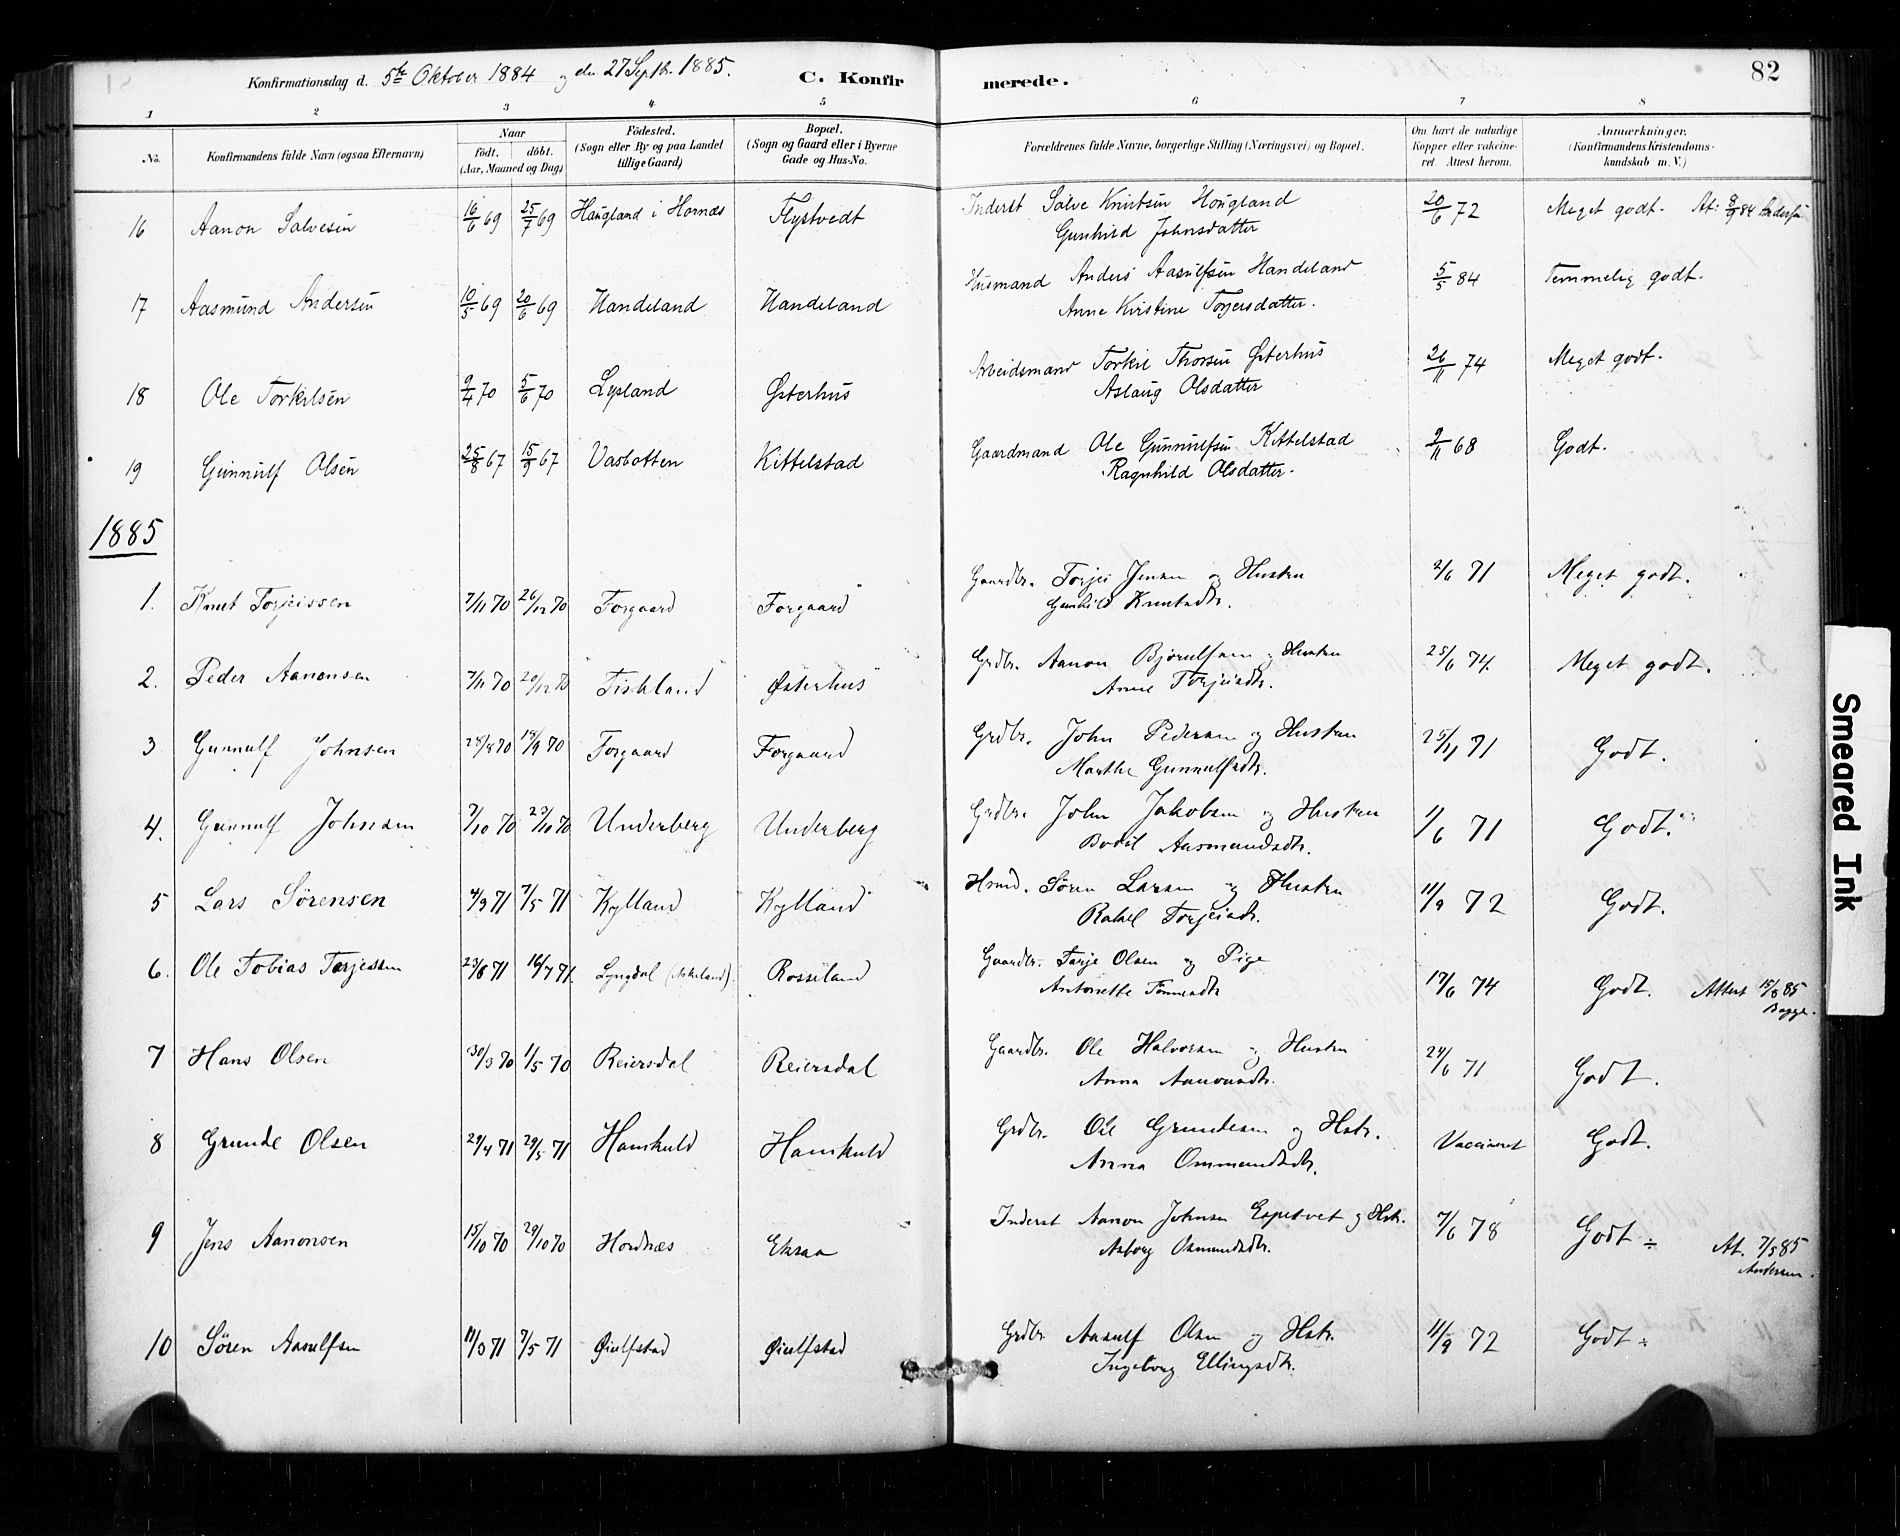 Konfirmationsdag d. 5te Oktober 1884 og den 27 Septbr. 1885. C. Konfirmerede. 82
1 2 3 4 5 6 7 8
No. Konfirmandens fulde Navn (ogsaa Efternavn) Naar født. døbt. (Aar, Maaned og Dag) Fødested. (Sogn eller By og paa Landet tillige Gaard) Bopæl. (Sogn og Gaard eller i Byerne Gade og Hus-No. Forældrenes fulde Navne, borgerlige Stilling (Næringsvei) og Bopæl. Om havt de naturlige Kopper eller vakcineret. Attest herom. Anmærkninger. (Konfirmandens Kristendomskundskab m. V.)
16 Aanon Salvesen 16/6 69 25/7 69 Haugland i Hornæs Flystvedt Inderst Salve Knutsen Hougland 20/6 72 Meget godt. At: 8/9 84
Gunhild Johnsdatter
17 Aasmund Andersen 10/5 69 20/6 69 Handeland Handeland Husmand Anders Aasulfsen Handeland 5/5 84 Temmelig godt.
Anne Kirstine Torjersdatter.
18 Ole Torkilsen 9/4 70 5/6 70 Lysland Østerhus Arbeidsmand Torkil Thorsen Østerhus 26/11 74 Meget godt.
Aslaug Olsdatter
19 Gunnulf Olsen 25/8 67 15/9 67 Vasbotten Kittelstad Gaardmand Ole Gunnulfsen Kittelstad 9/11 68 Godt.
Ragnhild Olsdatter.
1885
1. Knut Torjeissen 7/11 70 26/12 70 Forgaard Forgaard Gaardbr. Torjei Jensen og Hustru 2/6 71 Meget godt.
Gunhild Knutsdtr.
2. Peder Aanonsen 7/11 70 20/12 70 Fiskland Østerhus Grdbr. Aanon Bjorulfsen og Hustru 25/6 74. Meget godt.
Anne Torjeisdtr.
3 Gunnulf Johnsen 28/8 70 18/9 70 Forgaard Forgaard Grdbr. John Pedersen og Hustru 25/11 71 Godt.
Marthe Gunnulfsdtr.
4. Gunnulf Johnsen 7/10 70 23/10 70 Underberg Underberg Grdbr. John Jakobsen og Hustru 1/6 71 Godt.
Bodil Aasmundsdtr.
5 Lars Sørensen 4/3 71 7/5 71 Kylland Kylland Hmd. Søren Larsen og Hustru 11/9 72 Godt.
Rakel Torjeisdr.
6. Ole Tobias Tarjessen 23/6 71 16/7 71. Lyngdal Rosseland Gaardbr. Tarje Olsen og Pige 17/6 74 Godt. Attest 15/8 85
Antonette Tønnesdtr Bugge.
7 Hans Olsen 30/3 70 1/5 70 Reiersdal Reiersdal Gaardbr. Ole Halvorsen og Hustru 24/6 71 Godt.
Anna Aanonsdtr.
8 Grunde Olsen 29/4 71 29/5 71 Homkuld Homkuld Grdbr. Ole Grundesen og Hstr. Vaccineret Godt.
Anna Ommundsdtr.
9 Jens Aanonsen 15/10 70 29/10 70 Hordnæs Eksaa Inderst Aanon Johnsen Espetvet og Hstr. 7/6 78 Godt ÷ At. 7/5 85
Asborg Osmundsdtr. Andersen.
10 Søren Aasulfsen 11/3 71 7/5 71 Øiulfstad Øiulfstad Grdbr Aasulf Olsen og Hstr. 11/9 72 Godt ÷
Ingeborg Ellingsdtr.
Smeared Ink